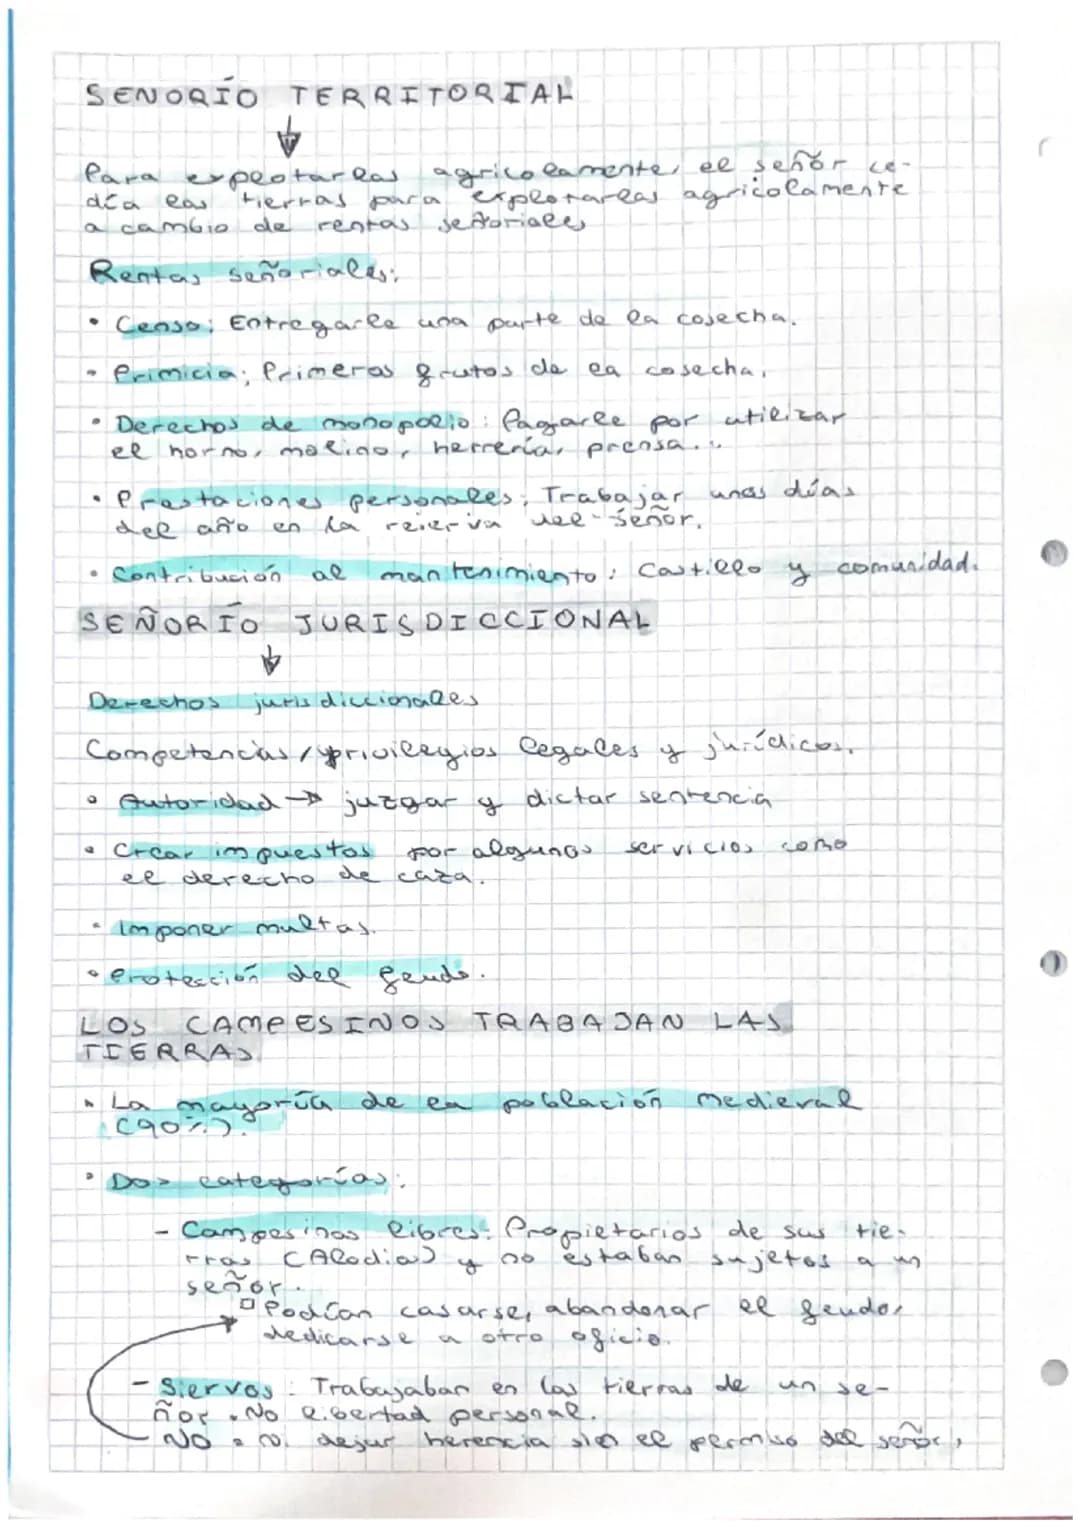 SEÑORÍO TERRITORIAL
Para explotarlas agricolamente, el señor ce-
día las tierras para explotarlas agricolamente
a cambio de rentas señoriales
Rentas señoriales:
• Censo: Entregarle una parte de la cosecha.
• Primicia: Primeros frutos de la cosecha.
• Derechos de monopolio: Pagarle por utilizar
el horno, molino, herrería, prensa...
• Prestaciones personales: Trabajar unos días
del año en la reserva del señor.
• Contribución al mantenimiento: Castillo y comunidad.
SEÑORÍO JURISDICCIONAL
Derechos jurisdiccionales
Competencias / privilegios legales y jurídicos.
• Autoridad → juzgar y dictar sentencia
• Crear impuestos por algunos servicios como
el derecho de caza.
• Imponer multas.
• Protección del feudo.
LOS CAMPESINOS TRABAJAN LAS
TIERRAS
• La mayoría de la población medieval
(90%).
• Dos categorías:
- Campesinos libres: Propietarios de sus tie-
rras (Alodias) y no estaban sujetos a un
señor.
▫ Podían casarse, abandonar el feudo,
dedicarse a otro oficio.
- Siervos: Trabajaban en las tierras de un se-
ñor. No libertad personal.
NO • ni dejar herencia sin el permiso del señor,